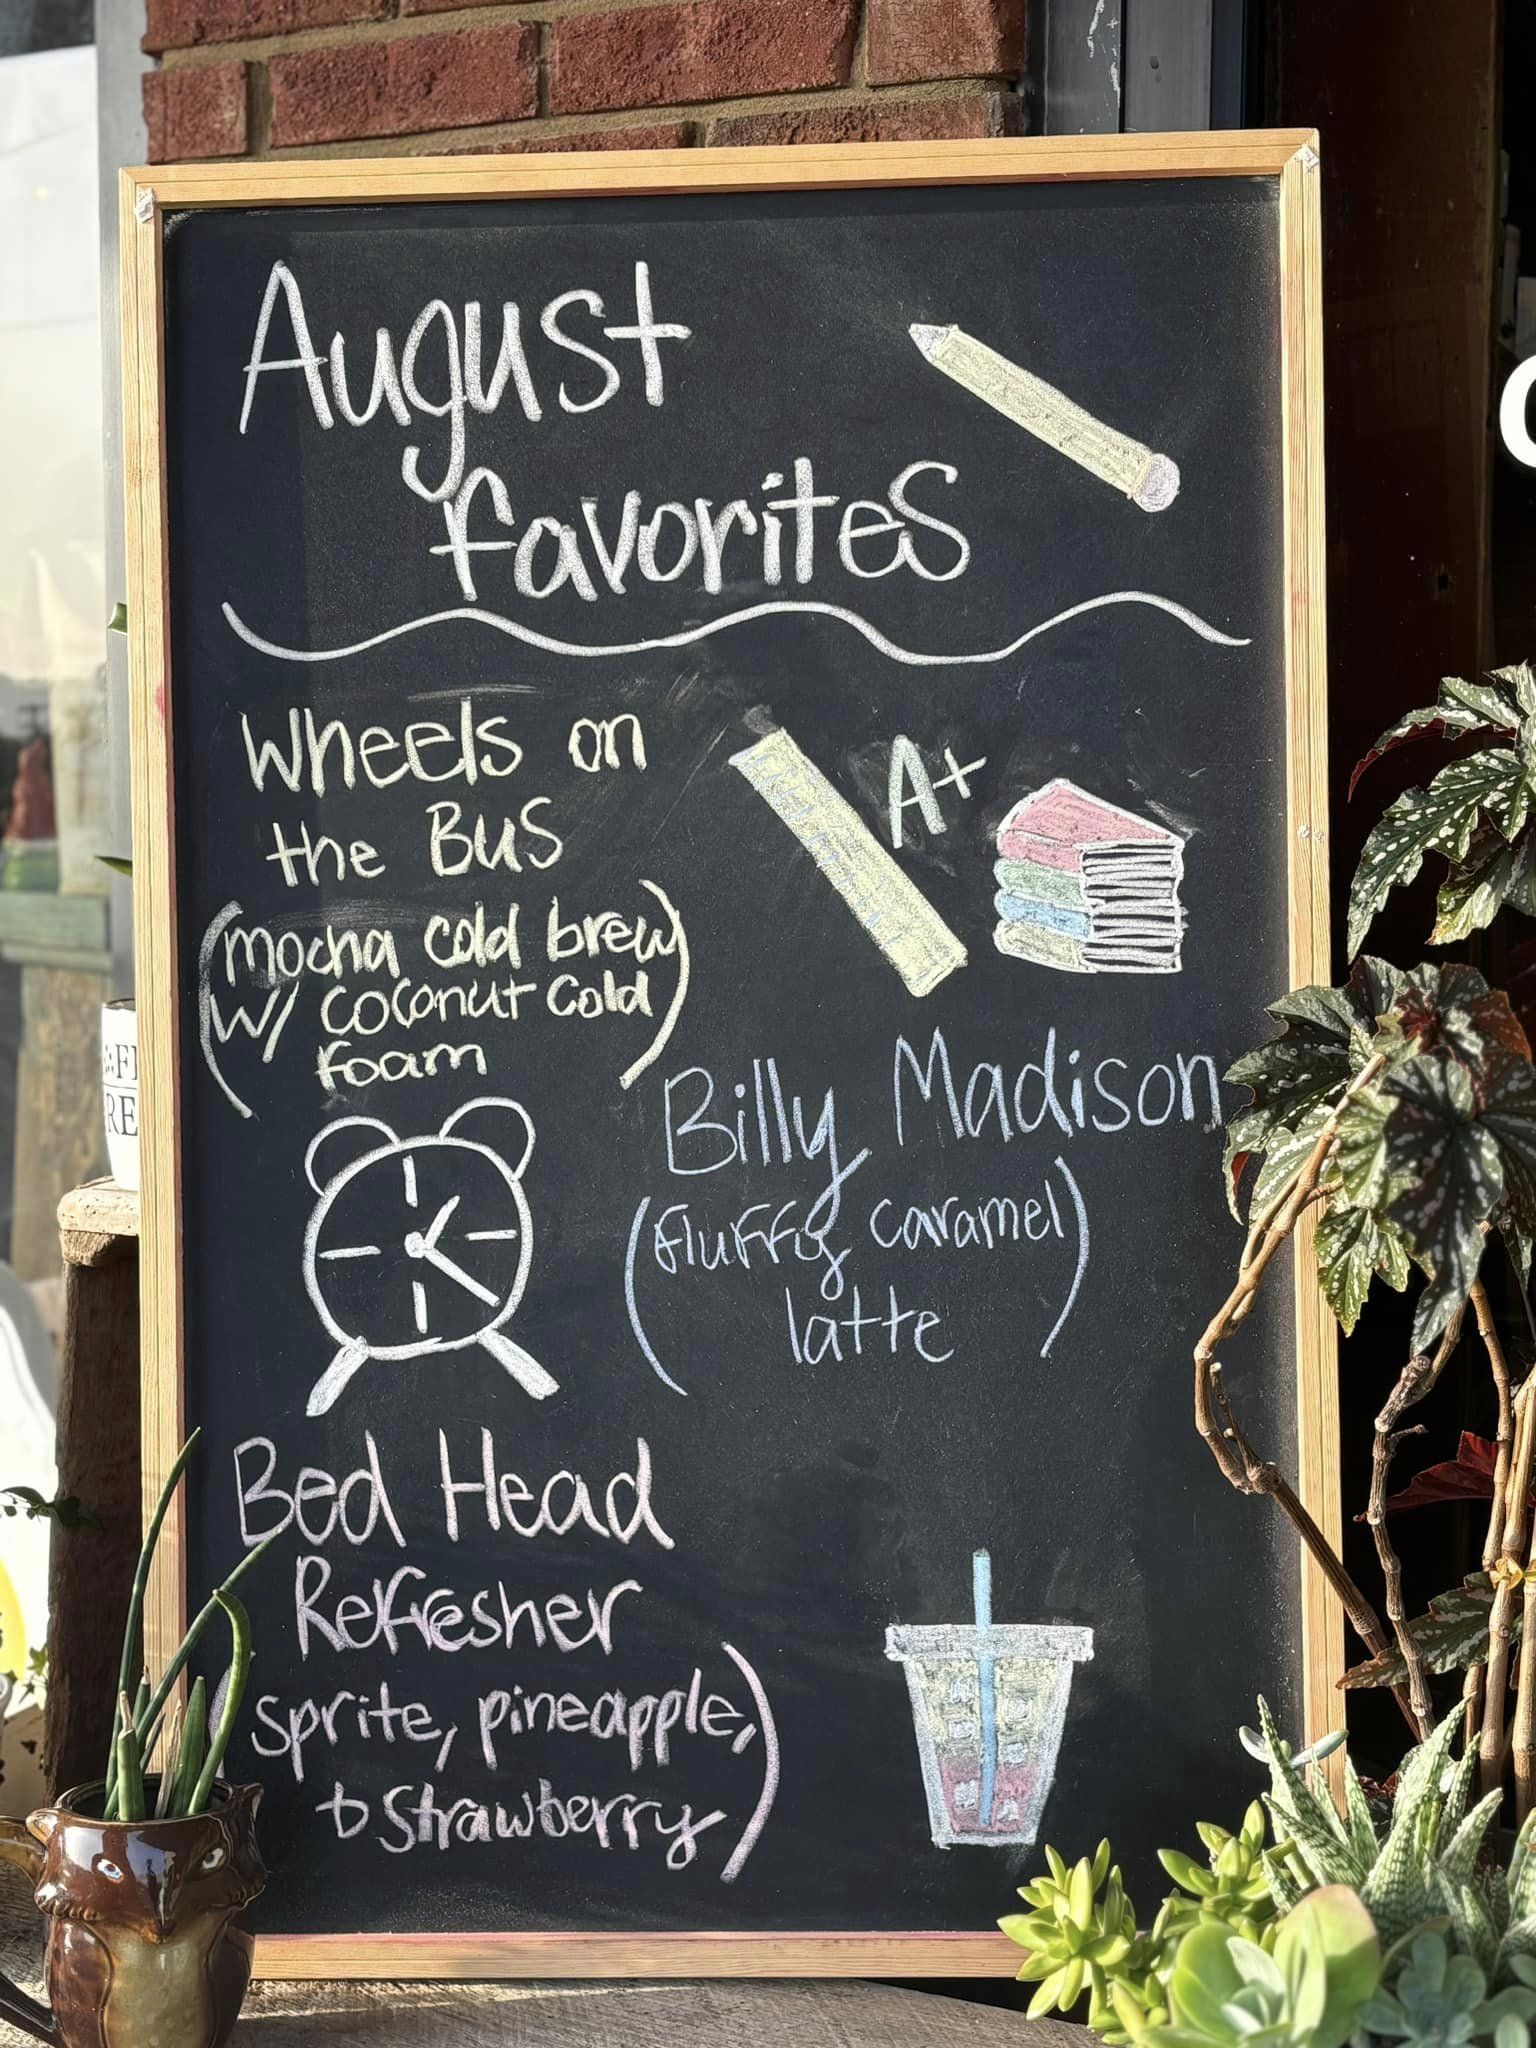 August
favorites
Wheels on
the Bus
(mocha cold brew
w/ coconut cold
foam)
A+
Billy Madison
(Fluffy caramel
latte)
Bed Head
Refresher
(sprite, pineapple,
+ strawberry)